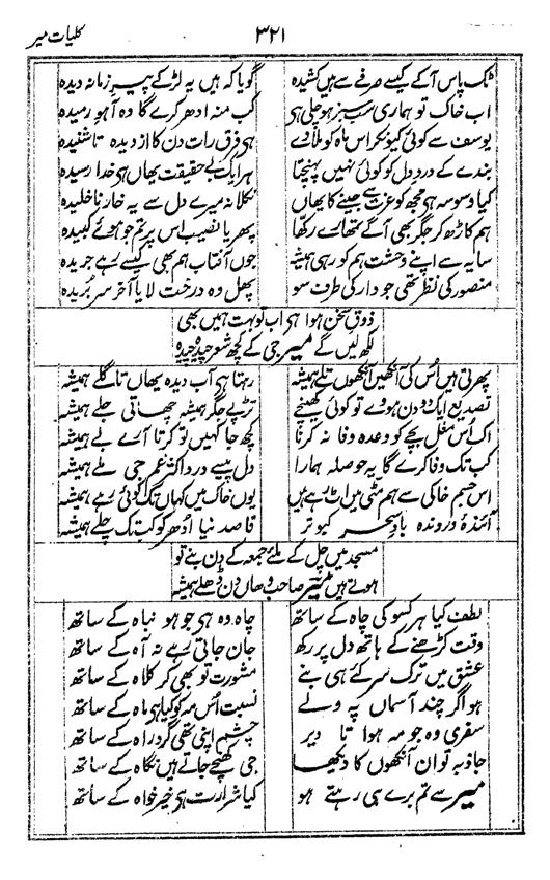 کلیات میر
۳۲۱
ٹک پاس آ کے کیسے صرفے سے ہیں کشیدہ
گویا کہ ہیں یہ لڑکے پیر زمانہ دیدہ
اب خاک تو ہماری سب سبز ہو چلی ہی
کب منہ ادھر کرے گا وہ آہوے رمیدہ
یوسف سے کوئی کیونکر اس ماہ کو ملاوے
ہی فرق رات دن کا از دیدہ تا شنیدہ
بندے کے درد دل کو کوئی نہیں پہنچتا
ہر ایک بے حقیقت یھاں ہی خدا رسیدہ
کیا وسوسہ ہی مجھ کو عزت سے جینے کا یھاں
نکلا نہ میرے دل سے یہ خار نا خلیدہ
ہم کاڑھ کر جگر بھی آگے تمھارے رکھا
پھر یا نصیب اس پر تم جو ہوئے کبیدہ
سایہ سے اپنے وحشت ہم کو رہی ہمیشہ
جوں آفتاب ہم بھی کیسے رہے جریدہ
منصور کی نظر تھی جو دار کی طرف سو
پھل وہ درخت لایا آخر سر بریدہ
ذوق سخن ہوا ہی اب تو بہت ہمیں بھی
لکھ لیں گے میر جی کے کچھ شعر چیدہ چیدہ
پھرتی ہیں اُس کی آنکھیں آنکھوں تلے ہمیشہ
رہتا ہی آب دیدہ یھاں تا گلے ہمیشہ
تصدیع ایک دو دن ہووے تو کوئی کھینچے
تڑپے جگر ہمیشہ چھاتی جلے ہمیشہ
اک اُس مغل بچے کو وعدہ وفا نہ کرنا
کچھ جا کہیں تو کرنا آرے بلے ہمیشہ
کب تک وفا کرے گا یہ حوصلہ ہمارا
دل پیسے درد اکثر غم جی ملے ہمیشہ
اس جسم خاکی سے ہم مٹی میں اٹ رہے ہیں
یوں خاک میں کہاں تک کوئی رہے ہمیشہ
آئندہ و روندہ باد سحر کبوتر
قاصد نیا ادھر کو کب تک چلے ہمیشہ
مسجد میں چل کے ملئے جمعہ کے دن بنے تو
ہوتے ہیں میر صاحب وھاں دن ڈھلے ہمیشہ
لطف کیا ہر کسو کی چاہ کے ساتھ
چاہ وہ ہی جو ہو نباہ کے ساتھ
وقت کڑھنے کے ہاتھ دل پر رکھ
جان جاتی رہے نہ آہ کے ساتھ
عشق میں ترک سر کئے ہی بنے
مشورت تو بھی کر کلاہ کے ساتھ
ہو اگر چند آسماں پہ ولے
نسبت اُس مہ کو کیا ہی ماہ کے ساتھ
سفری وہ جو مہ ہوا تا دیر
چشم اپنی تھی گرد راہ کے ساتھ
جاذبہ تو ان آنکھوں کا دیکھا
جی کھچے جاتے ہیں نگاہ کے ساتھ
میر سے تم برے ہی رہتے ہو
کیا شرارت ہی خیر خواہ کے ساتھ